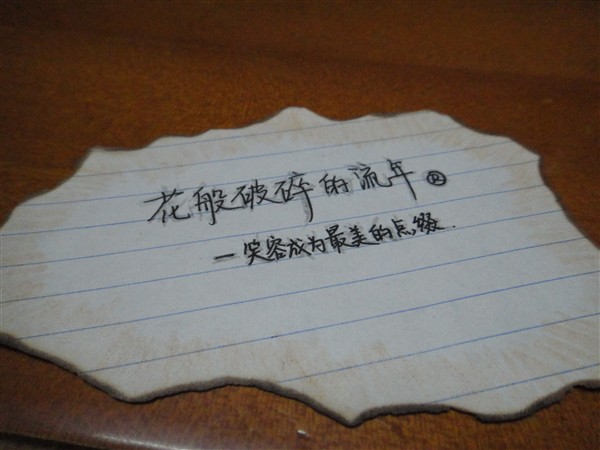 花般破碎的流年®
—笑容成为最美的点缀.